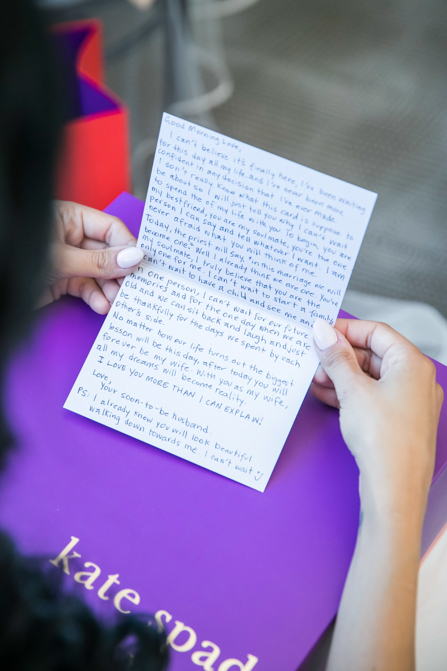 Good Morning Love,
I can't believe it's finally here, I've been waiting
for this day all my life and I've never been more
confident in any decision that I've ever made.
I don't really know what this card is suppose to
be about so I will just tell you why I can't wait
to spend the of my life with you. To begin, you are
my best friend, you are my soulmate, you're the one
person I can say and tell whatever I want.
never afraid what you will think of me. I am
Today, the priest will say "in this marriage we will
become one." Well I already think we are one. You're
my soulmate, I truly believe that you are the
only one for me. I can't wait to start a family
can't wait to have a child and see me and
in one person. I can't wait for our future
memories and for the one day when we are
old and we can sit back and laugh and just
be thankfully for the days we spent by each
other's side.
No matter how our life turns out the biggest
lesson will be this day after today you will
forever be my wife. With you as my wife,
all my dreams will become reality.
I LOVE YOU MORE THAN I CAN EXPLAIN!
Love,
Your soon-to-be husband
PS: I already know you will look beautiful
walking down towards me I can't wait :)
kate spad